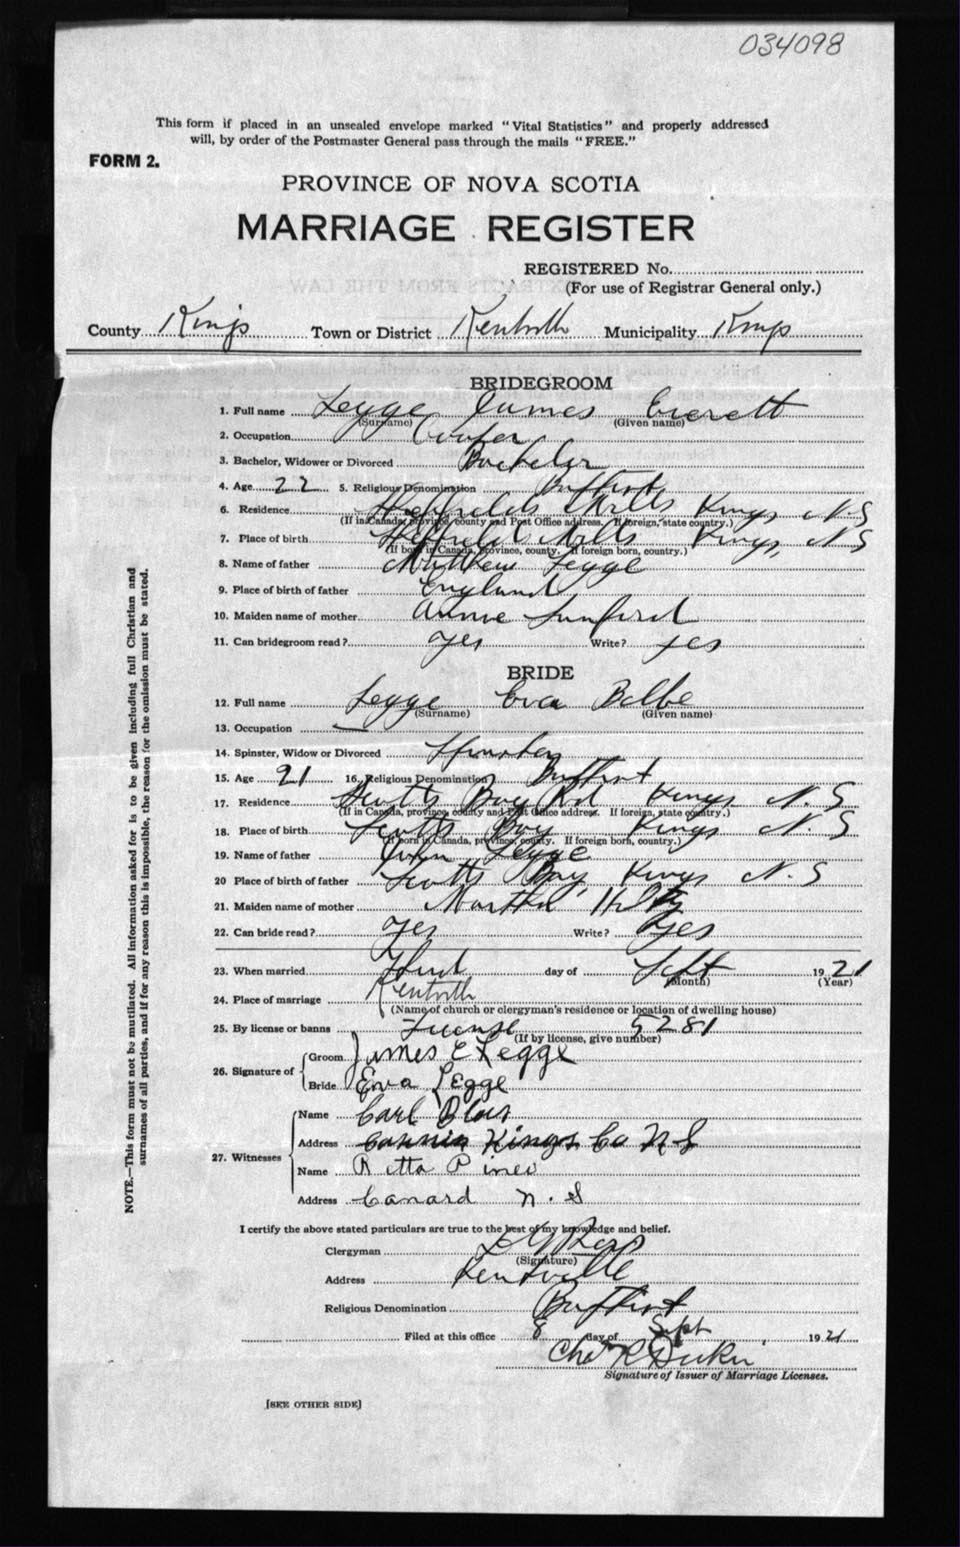 034098
This form if placed in an unsealed envelope marked "Vital Statistics" and properly addressed
will, by order of the Postmaster General pass through the mails "FREE."
FORM 2.
PROVINCE OF NOVA SCOTIA
MARRIAGE REGISTER
REGISTERED No.
(For use of Registrar General only.)
County Kings Town or District Kentville Municipality Kings
BRIDEGROOM
1. Full name Legge James Everett
(Surname) (Given name)
2. Occupation Cooper
3. Bachelor, Widower or Divorced Bachelor
4. Age 22 5. Religious Denomination Baptist
6. Residence Sheffields Mills Kings N.S
(If in Canada, province, county and Post Office address. If foreign, state country.)
7. Place of birth Sheffield Mills Kings, N S
(If born in Canada, province, county. If foreign born, country.)
8. Name of father Matthew Legge
9. Place of birth of father England
10. Maiden name of mother Annie Sanford
11. Can bridegroom read? Yes Write? yes
BRIDE
12. Full name Legge Eva Belle
(Surname) (Given name)
13. Occupation —
14. Spinster, Widow or Divorced Spinster
15. Age 21 16. Religious Denomination Baptist
17. Residence Scotts Bay Rd Kings N. S
(If in Canada, province, county and Post Office address. If foreign, state country.)
18. Place of birth Scotts Bay Kings N. S
(If born in Canada, province, county. If foreign born, country.)
19. Name of father John Legge
20 Place of birth of father Scotts Bay Kings N. S
21. Maiden name of mother Martha
22. Can bride read? yes Write? yes
23. When married Third day of Sept 1921
(Month) (Year)
24. Place of marriage Kentville
(Name of church or clergyman's residence or location of dwelling house)
25. By license or banns License 5281
(If by license, give number)
26. Signature of Groom James E Legge
Bride Eva Legge
27. Witnesses Name Carl
Address Canning Kings Co N S
Name Retta Pineo
Address Canard N. S
I certify the above stated particulars are true to the best of my knowledge and belief.
Clergyman
(Signature)
Address Kentville
Religious Denomination Baptist
Filed at this office 8 day of Sept 1921
Chas R
Signature of Issuer of Marriage Licenses.
[SEE OTHER SIDE]
NOTE.—This form must not be mutilated. All information asked for is to be given including full Christian and
surnames of all parties, and if for any reason this is impossible, the reason for the omission must be stated.